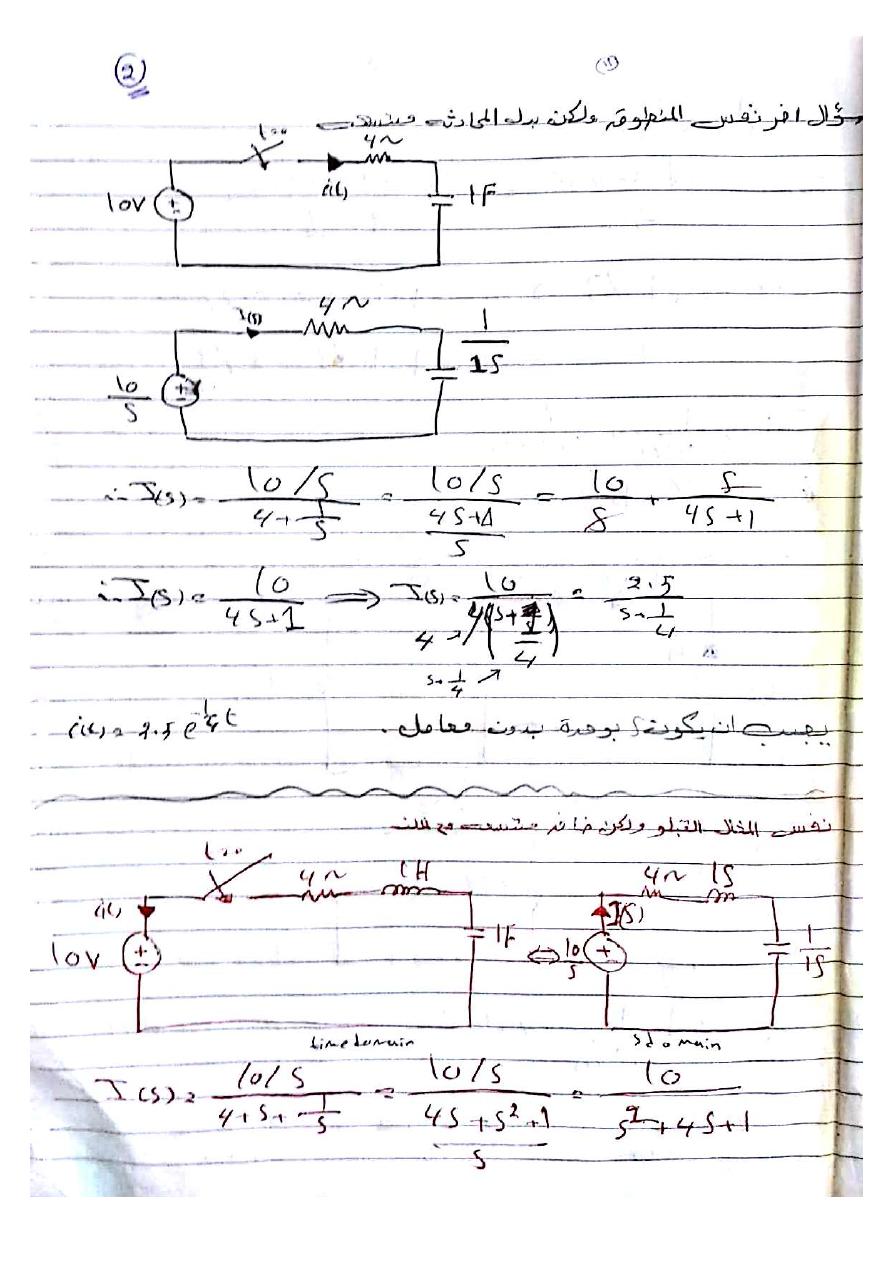 2
سؤال اخر نفس المنطوق ولكن بدل المحاثة متسعة
t=0
4
i(t)
10V
1F
I(s)
4
10/s
1/1s
∴ I(s) = (10/s)/(4+1/s) = (10/s)/((4s+1)/s) = 10/s · s/(4s+1)
∴ I(s) = 10/(4s+1) ⟹ I(s) = 10/(4(s+1/4)) = 2.5/(s+1/4)
4
s+1/4
يجب ان يكون s لوحدة بدون معامل.
i(t) = 2.5 e^1/4 t
نفس المثال القبلو ولكن
t=0
4
1H
i(t)
10V
1F
⇔
4
1S
I(s)
10/s
1/1s
time domain
s domain
I(s) = (10/s)/(4+s+1/s) = (10/s)/((4s+s²+1)/s) = 10/(s²+4s+1)